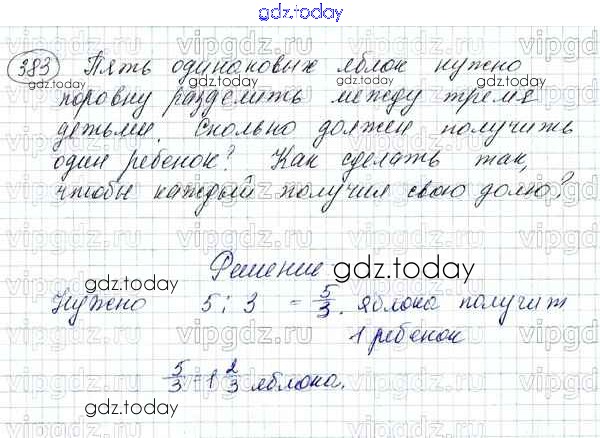 gdz.today
383 Пять одинаковых яблок нужно
поровну разделить между тремя
детьми. Сколько должен получить
один ребенок? Как сделать так,
чтобы каждый получил свою долю?
Решение
gdz.today
Нужно 5 : 3 = 5/3. яблока получит
1 ребенок
5/3 = 1 2/3 яблока.
gdz.today